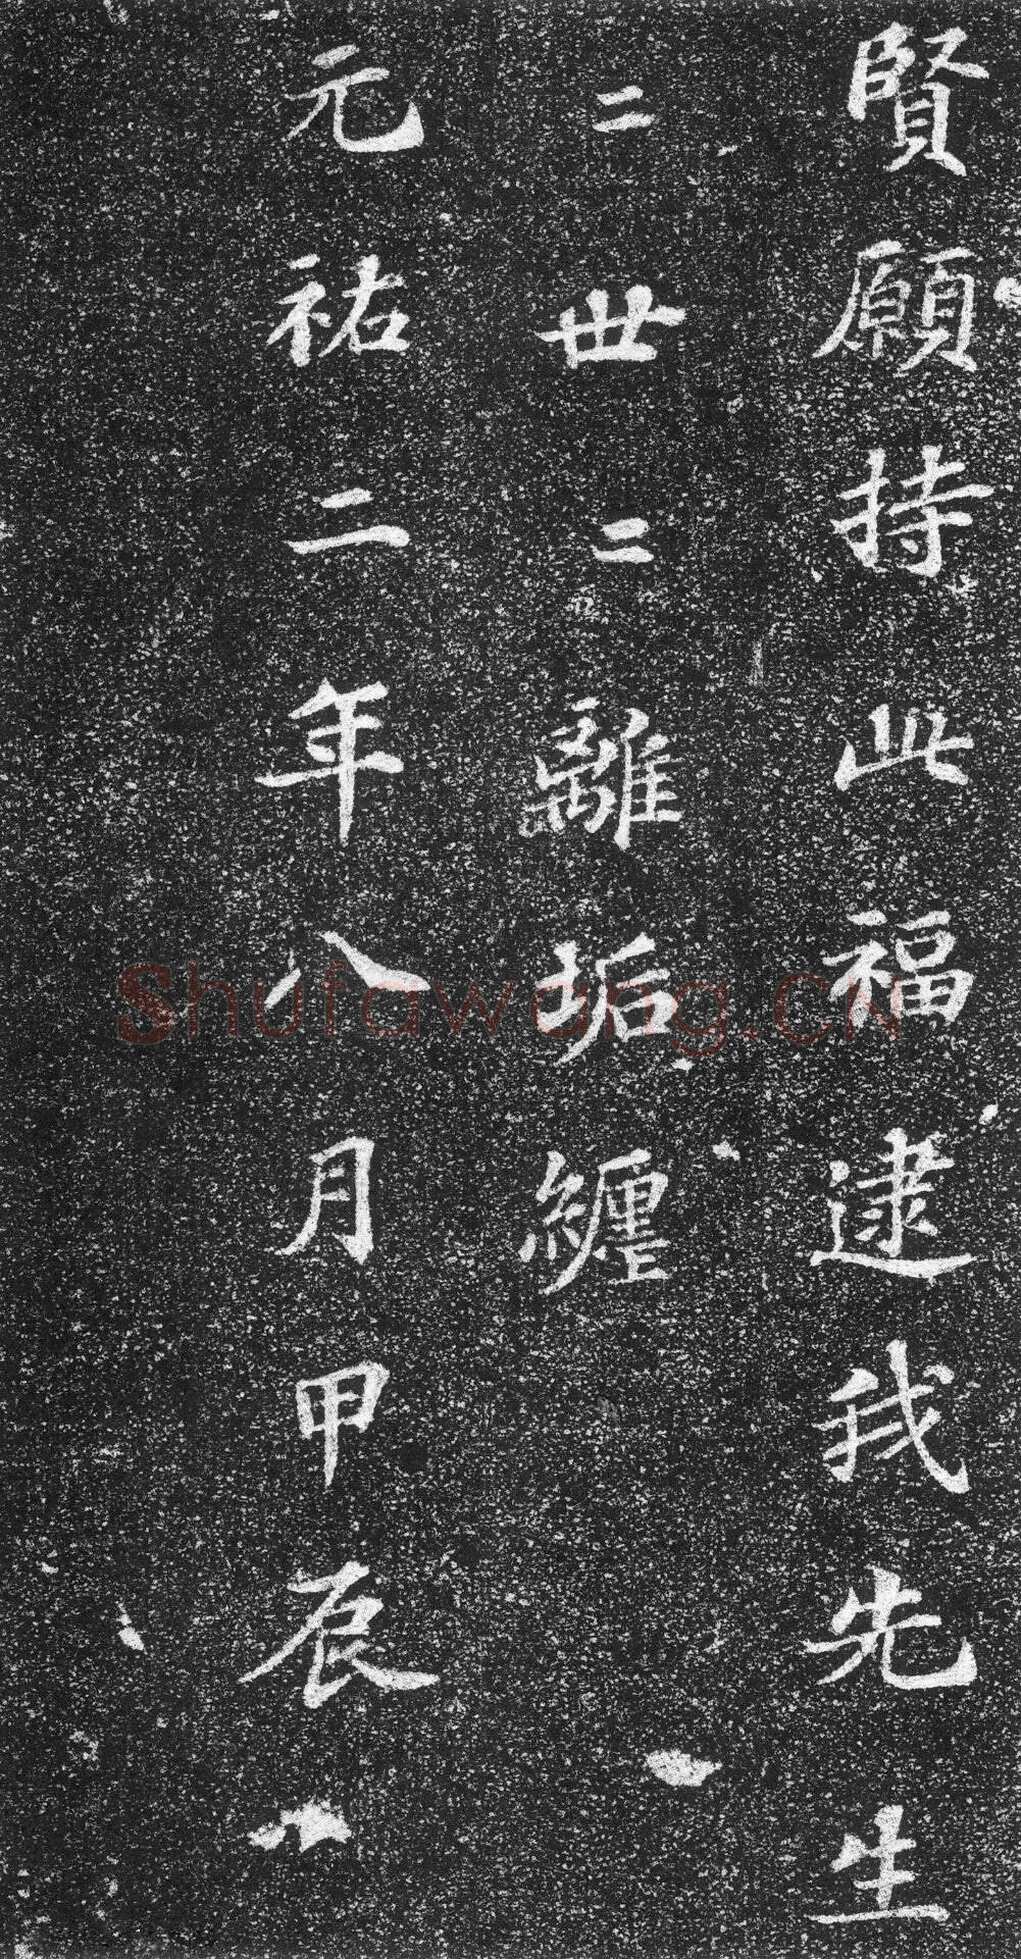 賢願持此福逮我先生
二世二離垢纏
元祐二年八月甲辰
Shufawang.CN